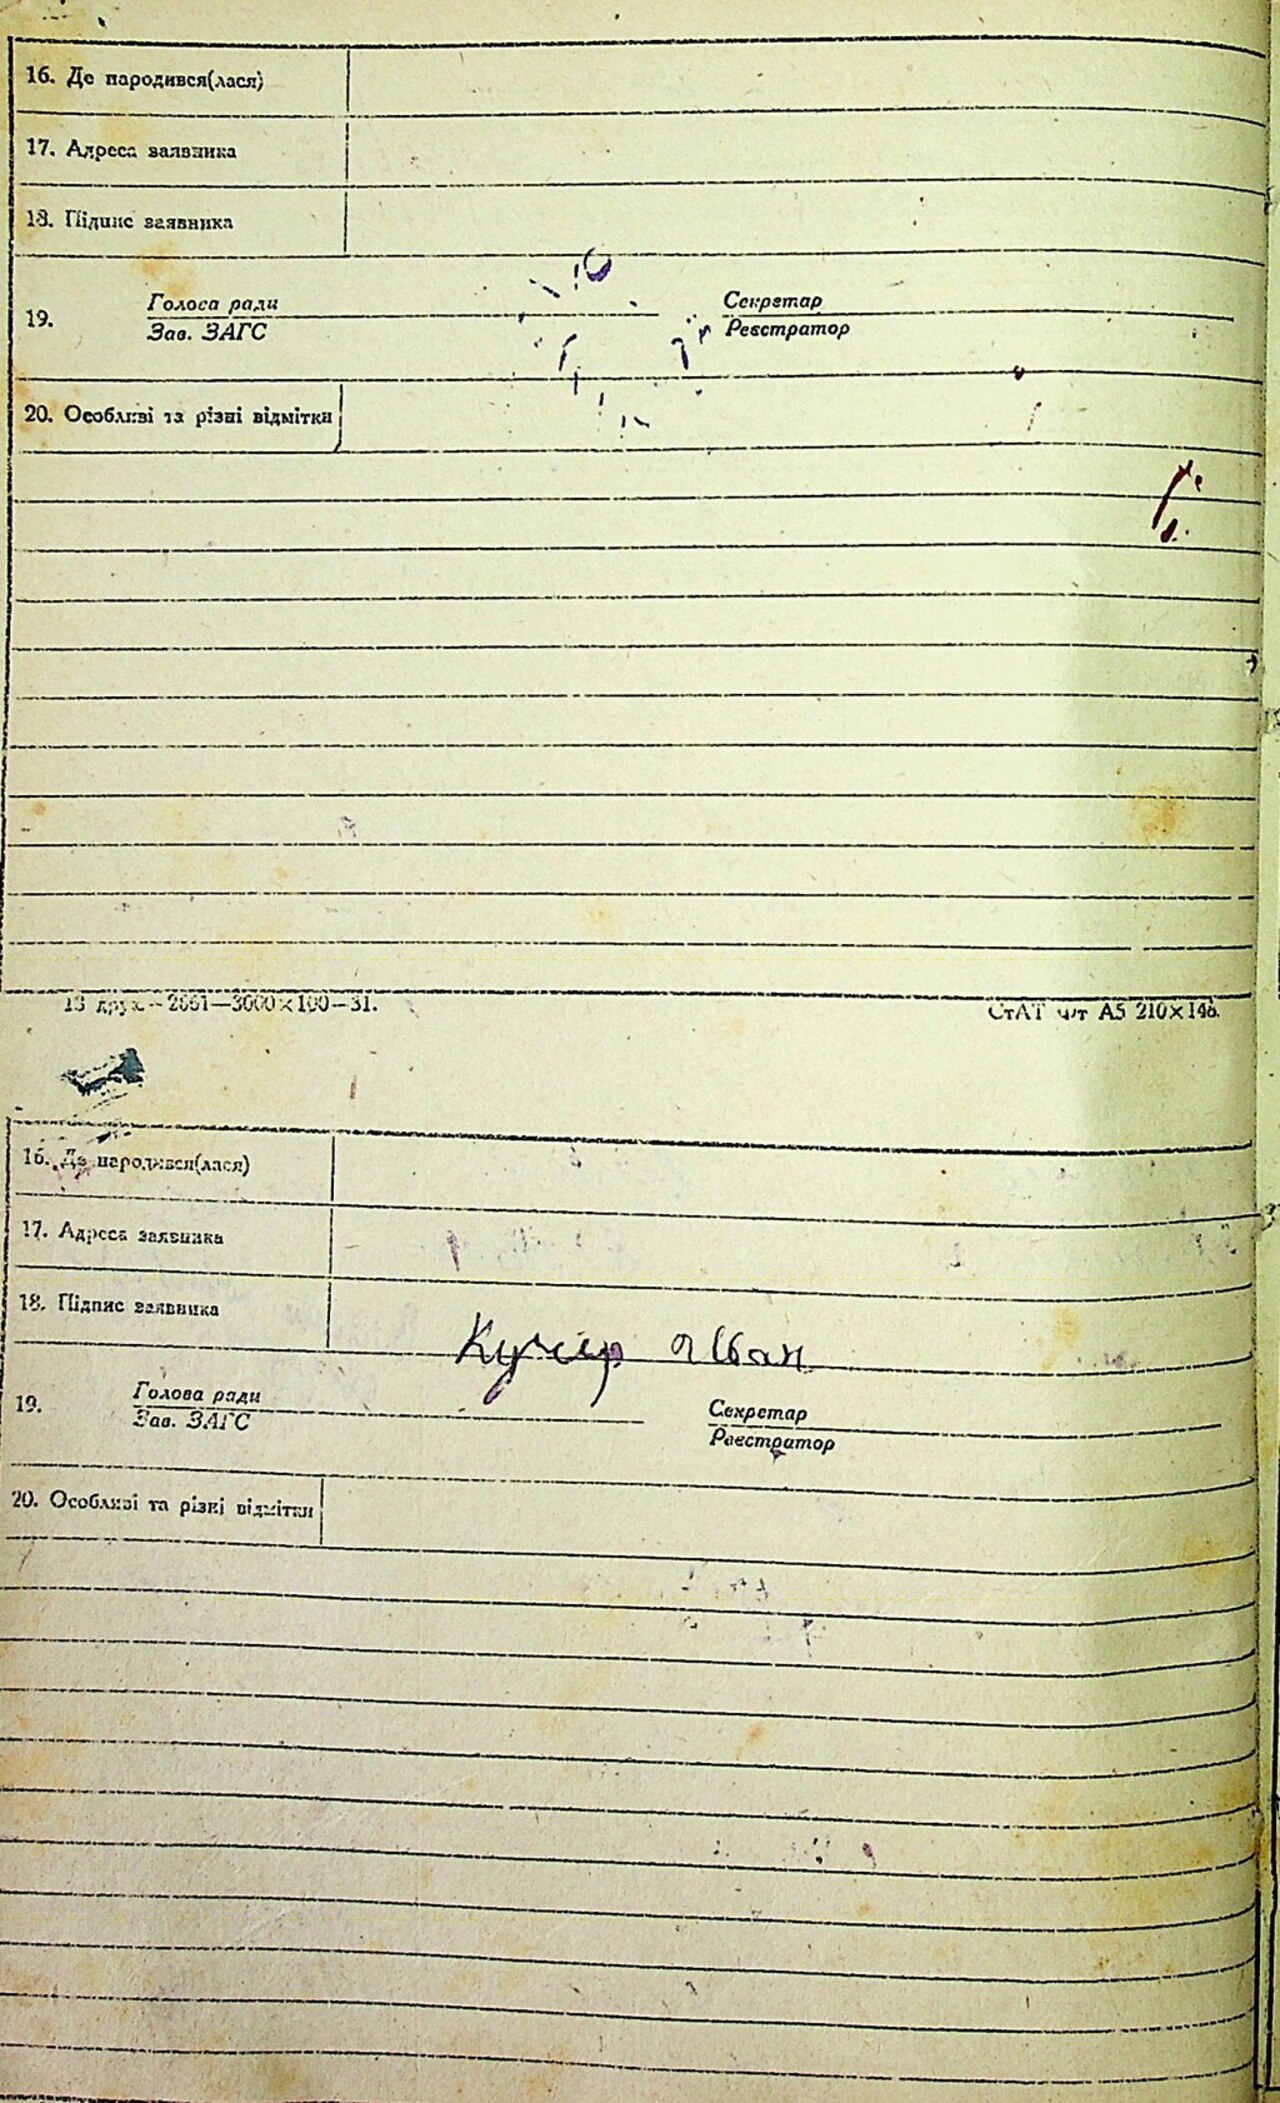 16. Де народився(лася)
17. Адреса заявника
18. Підпис заявника
19. Голова ради Секретар
Зав. ЗАГС Реєстратор
20. Особливі та різні відмітки
13 друк.—2661—3000×100—31. СтАТ ф/т А5 210×148.
16. Де народився(лася)
17. Адреса заявника
18. Підпис заявника
Кучер Іван
19. Голова ради Секретар
Зав. ЗАГС Реєстратор
20. Особливі та різні відмітки